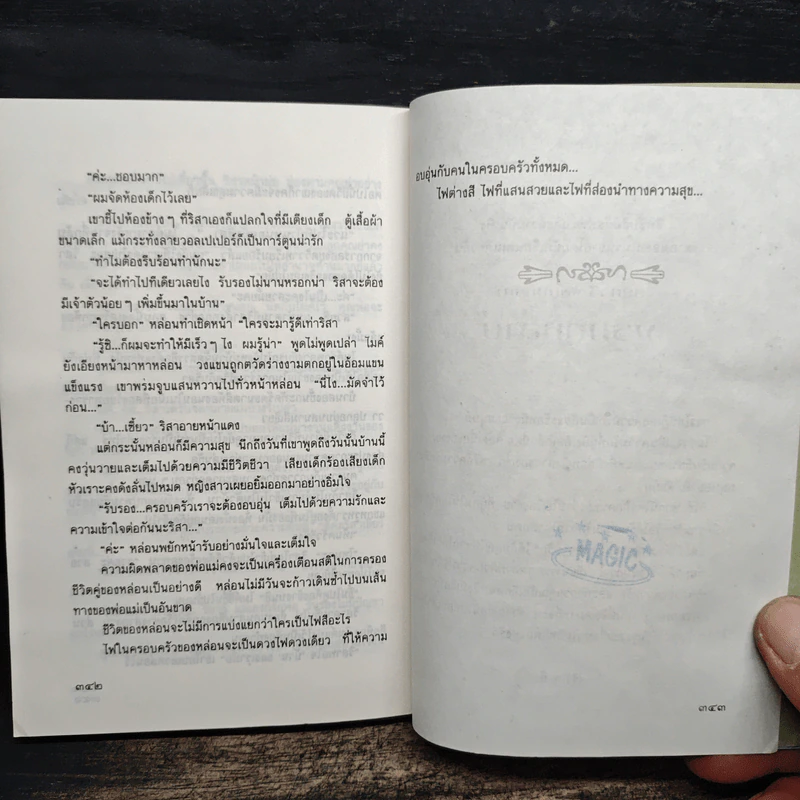 "ค่ะ...ชอบมาก"
"ผมจัดห้องเด็กไว้เลย"
เขาชี้ไปห้องข้างๆ ที่ริสาเองก็แปลกใจที่มีเตียงเด็ก ตู้เสื้อผ้า
ขนาดเล็ก แม้กระทั่งลายวอลเปเปอร์ก็เป็นการ์ตูนน่ารัก
"ทำไมต้องรีบร้อนทำนักนะ"
"จะได้ทำไปทีเดียวเลยไง รับรองไม่นานหรอกน่า ริสาจะต้อง
มีเจ้าตัวน้อยๆ เพิ่มขึ้นมาในบ้าน"
"ใครบอก" หล่อนทำเชิดหน้า "ใครจะมารู้ดีเท่าริสา
"รู้ซิ...ก็ผมจะทำให้มีเร็วๆ ไง ผมรู้น่า" พูดไม่พูดเปล่า ไมค์
ยังเอียงหน้ามาหาหล่อน วงแขนถูกตวัดร่างงามตกอยู่ในอ้อมแขน
แข็งแรง เขาพรมจูบแสนหวานไปทั่วหน้าหล่อน "นี่ไง...มัดจำไว้
ก่อน..."
"บ้า...เซี้ยว" ริสาอายหน้าแดง
แต่กระนั้นหล่อนก็มีความสุข นึกถึงวันที่เขาพูดถึงวันนั้นบ้านนี้
คงวุ่นวายและเต็มไปด้วยความมีชีวิตชีวา เสียงเด็กร้องเสียงเด็ก
หัวเราะคงดังลั่นไปหมด หญิงสาวเผยอยิ้มออกมาอย่างอิ่มใจ
"รับรอง...ครอบครัวเราจะต้องอบอุ่น เต็มไปด้วยความรักและ
ความเข้าใจต่อกันนะริสา..."
"ค่ะ" หล่อนพยักหน้ารับอย่างมั่นใจและเต็มใจ
ความผิดพลาดของพ่อแม่คงจะเป็นเครื่องเตือนสติในการครอง
ชีวิตคู่ของหล่อนเป็นอย่างดี หล่อนไม่มีวันจะก้าวเดินซ้ำไปบนเส้น
ทางของพ่อแม่เป็นอันขาด
ชีวิตของหล่อนจะไม่มีการแบ่งแยกว่าใครเป็นไฟสีอะไร
ไฟในครอบครัวของหล่อนจะเป็นดวงไฟดวงเดียว ที่ให้ความ
๓๔๒
อบอุ่นกับคนในครอบครัวทั้งหมด...
ไฟต่างสี ไฟที่แสนสวยและไฟที่ส่องนำทางความสุข...
MAGIC
๓๔๓